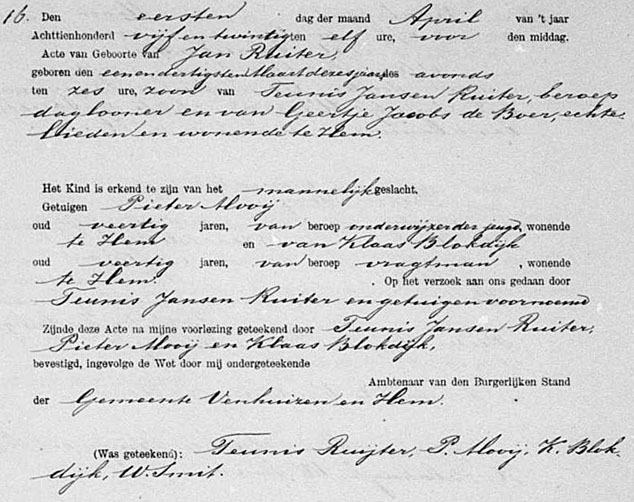 16. Den eersten dag der maand April van 't jaar
Achttienhonderd vijf en twintig ten elf ure, voor den middag.
Acte van Geboorte van Jan Ruiter,
geboren den eenendertigsten Maart dezes jaars des avonds
ten zes ure, zoon van Teunis Jansen Ruiter, beroep
daglooner en van Geertje Jacobs de Boer, echte-
lieden en wonende te Hem.
Het Kind is erkend te zijn van het mannelijk geslacht.
Getuigen Pieter Mooij
oud veertig jaren, van beroep onderwijzer der jeugd, wonende
te Hem en van Klaas Blokdijk
oud veertig jaren, van beroep vragtman, wonende
te Hem. Op het verzoek aan ons gedaan door
Teunis Jansen Ruiter en getuigen voornoemd
Zijnde deze Acte na mijne voorlezing geteekend door Teunis Jansen Ruiter,
Pieter Mooij en Klaas Blokdijk,
bevestigd, ingevolge de Wet door mij ondergeteekende
Ambtenaar van den Burgerlijken Stand
der Gemeente Venhuizen en Hem.
(Was geteekend): Teunis Ruijter, P. Mooij, K. Blok-
dijk, W. Smit.